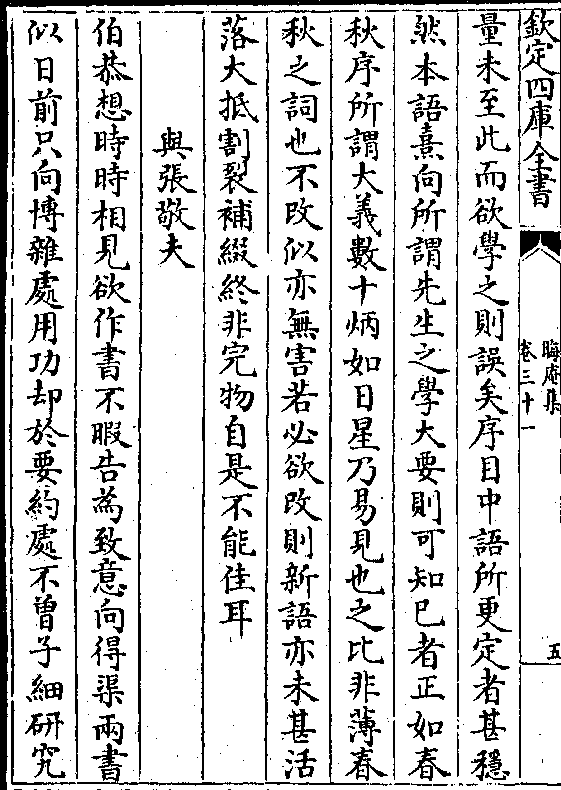 欽定四庫全書
晦庵集
卷三十一
五
量未至此而欲學之則誤矣序目中語所更定者甚穩
然本語熹向所謂先生之學大要則可知已者正如春
秋序所謂大義數十炳如日星乃易見也之比非薄春
秋之詞也不改似亦無害若必欲改則新語亦未甚活
落大抵割裂補綴終非完物自是不能佳耳
與張敬夫
伯恭想時時相見欲作書不暇告為致意向得渠兩書
似日前只向博雜處用功却於要約處不曾子細研究